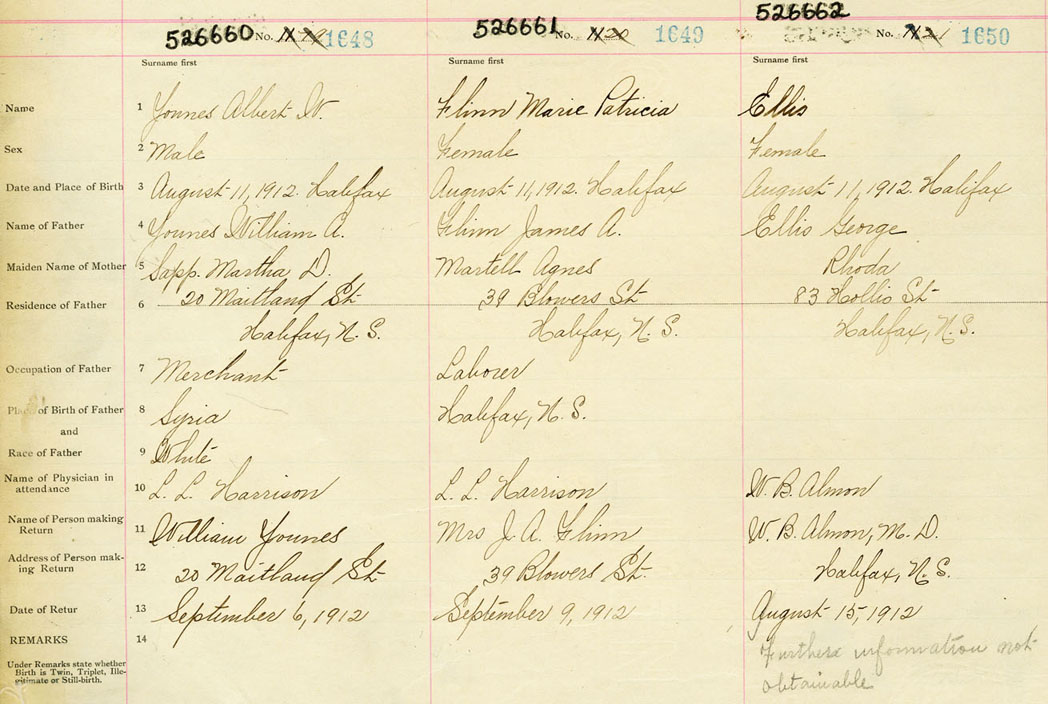 526660 No. 1648
526661 No. 1649
526662 No. 1650
Surname first Surname first Surname first
Name 1 Younes Albert W. Flinn Marie Patricia Ellis
Sex 2 Male Female Female
Date and Place of Birth 3 August 11, 1912. Halifax August 11, 1912. Halifax August 11, 1912. Halifax
Name of Father 4 Younes William A. Flinn James A. Ellis George
Maiden Name of Mother 5 Sapp. Martha D. Martell Agnes Rhoda
Residence of Father 6 20 Maitland St. 39 Blowers St 83 Hollis St
Halifax, N. S. Halifax, N. S. Halifax, N. S.
Occupation of Father 7 Merchant Laborer
Place of Birth of Father 8 Syria Halifax, N. S.
and
Race of Father 9 White
Name of Physician in
attendance 10 L. L. Harrison L. L. Harrison W. B. Almon
Name of Person making
Return 11 William Younes Mrs J. A. Flinn W. B. Almon, M. D.
Address of Person mak-
ing Return 12 20 Maitland St. 39 Blowers St. Halifax, N. S.
Date of Retur 13 September 6, 1912 September 9, 1912 August 15, 1912
REMARKS 14
Under Remarks state whether
Birth is Twin, Triplet, Ille-
gitimate or Still-birth.
Further information not
obtainable